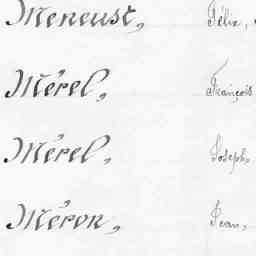 Meneust, Félix,
Mérel, François
Mérel, Joseph,
Méron, Jean,